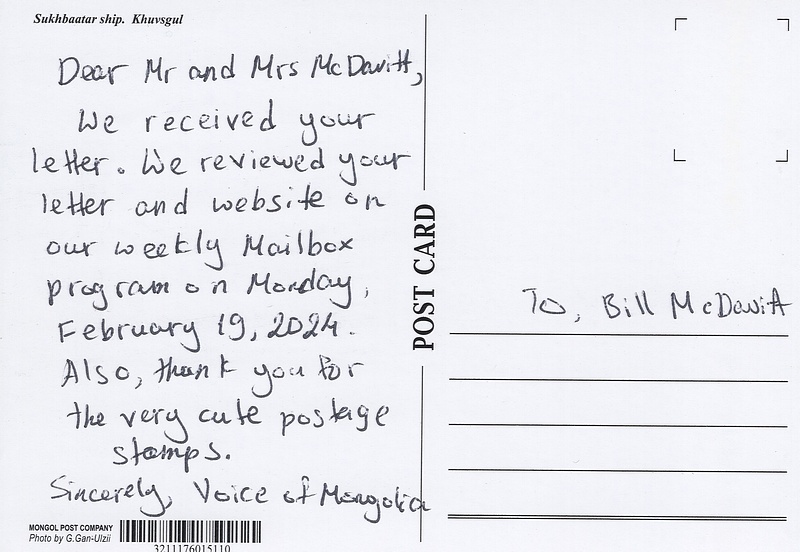 Sukhbaatar ship. Khuvsgul
Dear Mr and Mrs McDavitt,
We received your
letter. We reviewed your
letter and website on
our weekly Mailbox
program on Monday,
February 19, 2024.
Also, thank you for
the very cute postage
stamps.
Sincerely, Voice of Mongolia
MONGOL POST COMPANY
Photo by G.Gan-Ulzii
3211176015110
POST CARD
To, Bill McDavitt